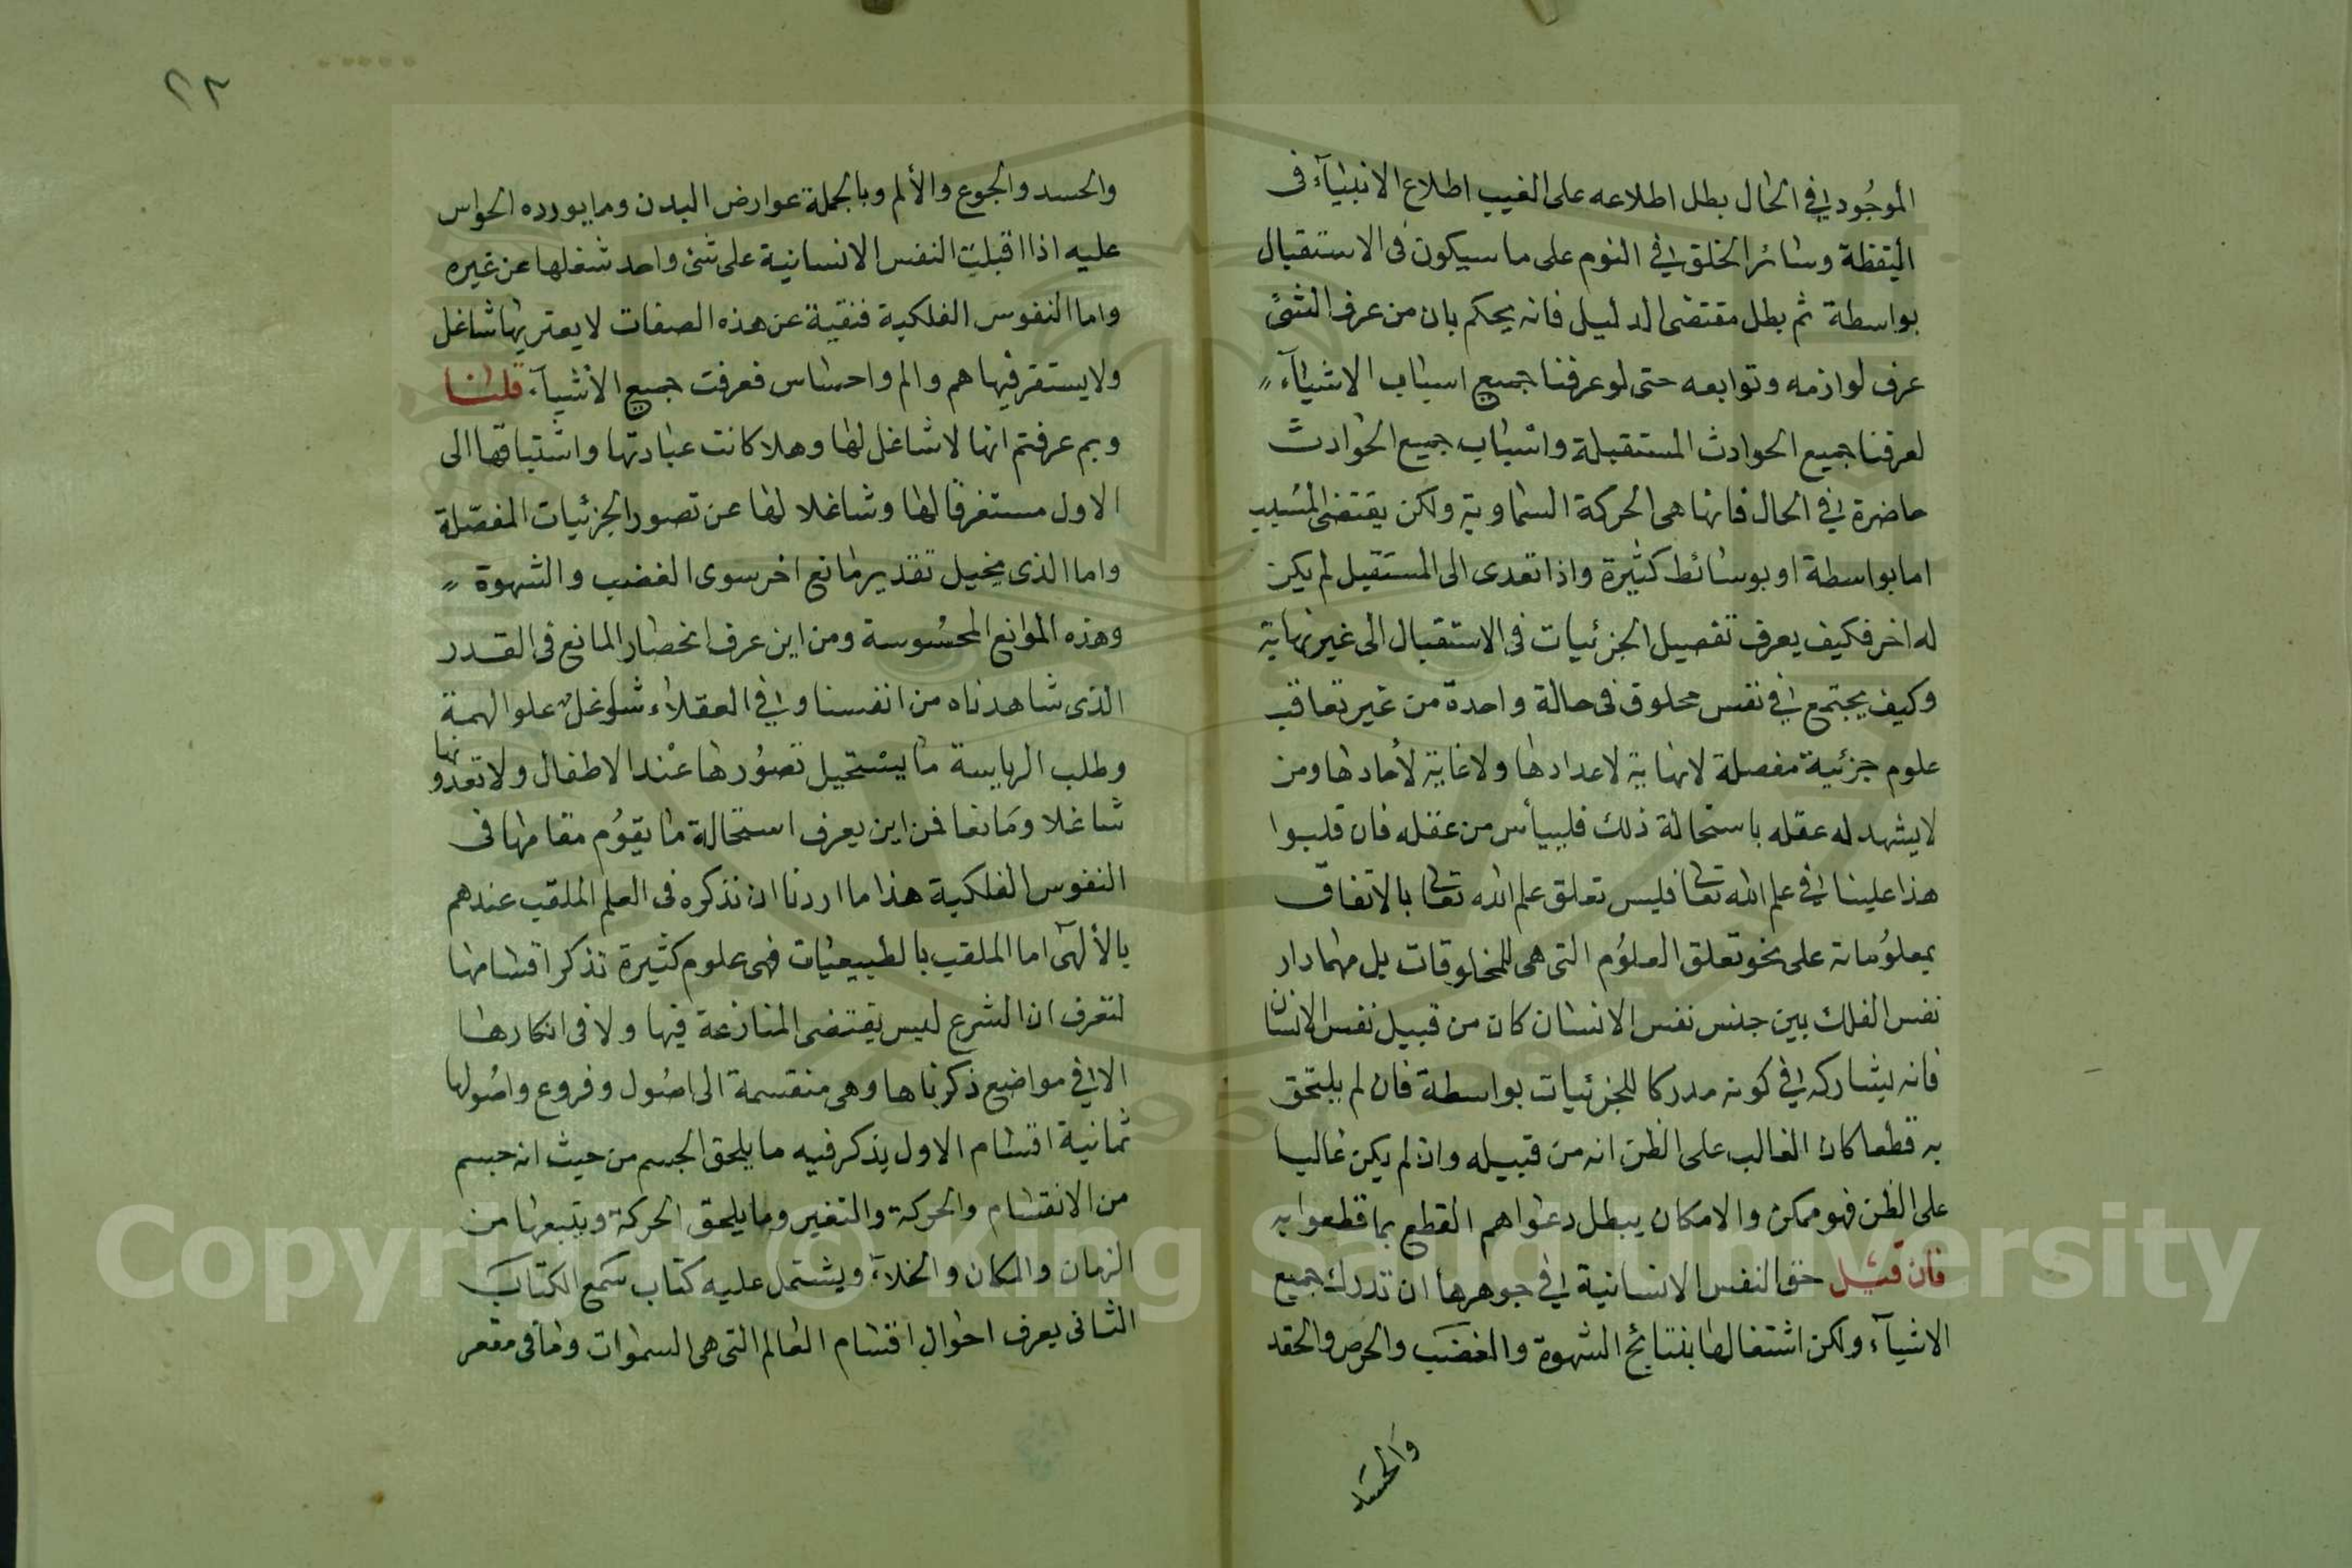 الموجود في الحال بطل اطلاعه على الغيب اطلاع الانبيآء فى
اليقظة وسائر الخلق في النوم على ما سيكون فى الاستقبال
بواسطة ثم بطل مقتضى الدليل فانه يحكم بان من عرف الشئ
عرف لوازمه وتوابعه حتى لو عرفنا جميع اسباب الاشيآء
لعرفنا جميع الحوادث المستقبلة واسباب جميع الحوادث
حاضرة في الحال فانها هى الحركة السماوية ولكن يقتضى المسبب
اما بواسطة او بوسائط كثيرة واذا تعدى الى المستقبل لم يكن
له اخر فكيف يعرف تفصيل الجزئيات فى الاستقبال الى غير نهاية
وكيف يجتمع في نفس مخلوق فى حالة واحدة من غير تعاقب
علوم جزئية مفصلة لانهاية لاعدادها ولا غاية لأحادها ومن
لا يشهد له عقله باستحالة ذلك فلييأس من عقله فان قلبوا
هذا علينا في علم الله تعالى فليس تعلق علم الله تعالى بالاتفاق
بمعلوماته على نحو تعلق العلوم التى هى للمخلوقات بل مهما دار
نفس الفلك بين جنس نفس الانسان كان من قبيل نفس الانسان
فانه يشاركه في كونه مدركا للجزئيات بواسطة فان لم يلتحق
به قطعا كان الغالب على الظن انه من قبيله وان لم يكن غالبا
على الظن فهو ممكن والامكان يبطل دعواهم القطع بما قطعوا به
فان قيل حق النفس الانسانية في جوهرها ان تدرك جميع
الاشيآء ولكن اشتغالها بنتائج الشهوة والغضب والحرص والحقد
والحسد
٢٣
والحسد والجوع والألم وبالجملة عوارض البدن وما يورده الحواس
عليه اذا اقبلت النفس الانسانية على شئ واحد شغلها عن غيره
واما النفوس الفلكية فنقية عن هذه الصفات لا يعتريها شاغل
ولا يستقر فيها هم والم واحساس فعرفت جميع الأشيآء قلنا
وبم عرفتم انها لا شاغل لها وهلا كانت عبادتها واشتياقها الى
الاول مستغرقا لها وشاغلا لها عن تصور الجزئيات المفصّلة
واما الذى يخيل تقدير مانع اخر سوى الغضب والشهوة
وهذه الموانع المحسوسة ومن اين عرف انحصار المانع فى القدر
الذى شاهدناه من انفسنا وفي العقلاء شواغل علو الهمة
وطلب الرياسة ما يستحيل تصورها عند الاطفال ولا تعدونها
شاغلا ومانعا فمن اين يعرف استحالة ما يقوم مقامها فى
النفوس الفلكية هذا ما اردنا ان نذكره فى العلم الملقب عندهم
بالألهى اما الملقب بالطبيعيات فهى علوم كثيرة تذكر اقسامها
لتعرف ان الشرع ليس يقتضى المنازعة فيها ولا فى انكارها
الا في مواضع ذكرناها وهى منقسمة الى اصول وفروع واصولها
ثمانية اقسام الاول يذكر فيه ما يلحق الجسم من حيث انه جسم
من الانقسام والحركة والتغير وما يلحق الحركة ويتبعها من
الزمان والمكان والخلآء ويشتمل عليه كتاب سمع الكتاب
الثانى يعرف احوال اقسام العالم التى هى السموات وما فى مقعر
Copyright © King Saud University